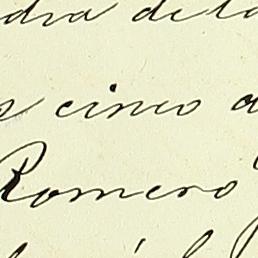 dra de la
s cinco a
Romero